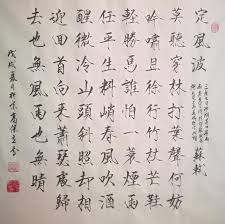 定風波 蘇軾
三月七日沙湖道中遇雨
莫聽穿林打葉聲何妨
吟嘯且徐行竹杖芒鞋
輕勝馬誰怕一蓑煙雨
任平生料峭春風吹酒
醒微冷山頭斜照卻相
迎回首向來蕭瑟處歸
去也無風雨也無晴
戊戌夏月